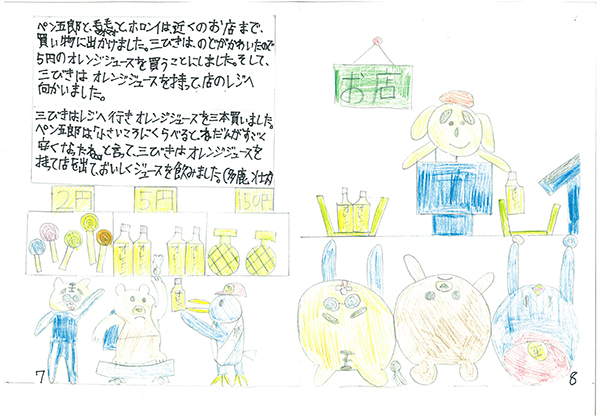 ペン五郎と、とホロンイは近くのお店まで、
買い物に出かけました。三びきは、のどがかわいたので
5円のオレンジジュースを買うことにしました。そして、
三びきは オレンジジュースを持って、店のレジへ
向かいました。
三びきはレジへ行きオレンジジュースを三本買いました。
ペン五郎は「小さいころにくらべると、ねだんがすごく
安くなったね。」と言って、三びきは オレンジジュースを
持て店を出て、おいしくジュースを飲みました。
2円
5円
150円
お店
7
8